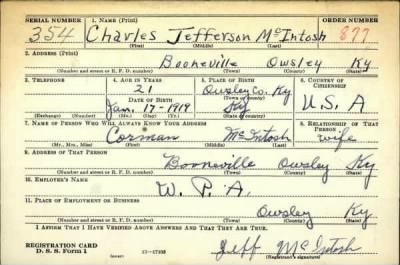 SERIAL NUMBER 1. NAME (Print) ORDER NUMBER
354 Charles Jefferson McIntosh 877
(First) (Middle) (Last)
2. ADDRESS (Print)
Booneville Owsley Ky
(Number and street or R. F. D. number) (Town) (County) (State)
3. TELEPHONE 4. AGE IN YEARS 5. PLACE OF BIRTH 6. COUNTRY OF CITIZENSHIP
21 Owsley Co. Ky
DATE OF BIRTH (Town or county)
Jan. 17-1919 Ky U.S.A
(Exchange) (Number) (Mo.) (Day) (Yr.) (State or country)
7. NAME OF PERSON WHO WILL ALWAYS KNOW YOUR ADDRESS 8. RELATIONSHIP OF THAT PERSON
Corman McIntosh wife
(Mr., Mrs., Miss) (First) (Middle) (Last)
9. ADDRESS OF THAT PERSON
Booneville Owsley Ky
(Number and street or R. F. D. number) (Town) (County) (State)
10. EMPLOYER'S NAME
W. P. A.
11. PLACE OF EMPLOYMENT OR BUSINESS
Owsley Ky.
(Number and street or R. F. D. number) (Town) (County) (State)
I AFFIRM THAT I HAVE VERIFIED ABOVE ANSWERS AND THAT THEY ARE TRUE.
REGISTRATION CARD
D. S. S. Form 1 (over) Jeff McIntosh
(Registrant's signature)